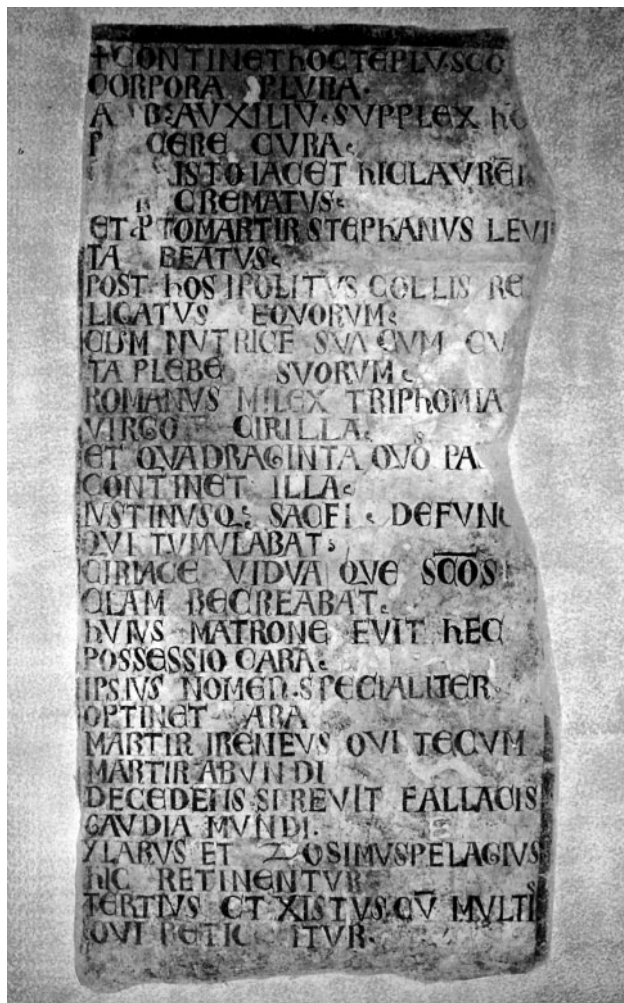 ✝CONTINET hOC TEPLV·SCO
CORPORA PLVRA·
A AVXILIV̄·SVPPLEX
CERE CVRA
ISTO IACET hIC LAVRĒI
CREMATVS
ET PTOMARTIR STEPhANVS LEVI
TA BEATVS
POST hOS IPOLITVS COLLIS RE
LIGATVS EQVORVM
CVM NVTRICE SVA CVM CV
TA PLEBE SVORVM
ROMANVS MILEX TRIPhOMIA
VIRGO CIRILLA
ET QVADRAGINTA QVOS PA
CONTINET ILLA
IVSTINVSQ: SACEI DEFVN
QVI TVMVLABAT
CIRIACE VIDVA QVE SC̄OS
CLAM RECREABAT
hVIVS MATRONE FVIT hEC
POSSESSIO CARA
IPSIVS NOMEN·SPECIALITER
OPTINET ARA
MARTIR IRENEVS QVI TECVM
MARTIR ABVNDI
DECEDENS SPREVIT FALLACIS
GAVDIA MVNDI·
YLARVS ET ZOSIMVS PELAGIVS
hIC RETINENTVR
TERTIVS ET XISTVS·CV̄ MVLTIS
QVI